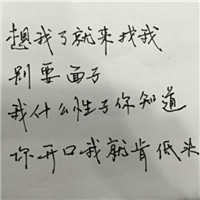 想我了就来找我
别要面子
我什么性子你知道
你开口我就肯低头